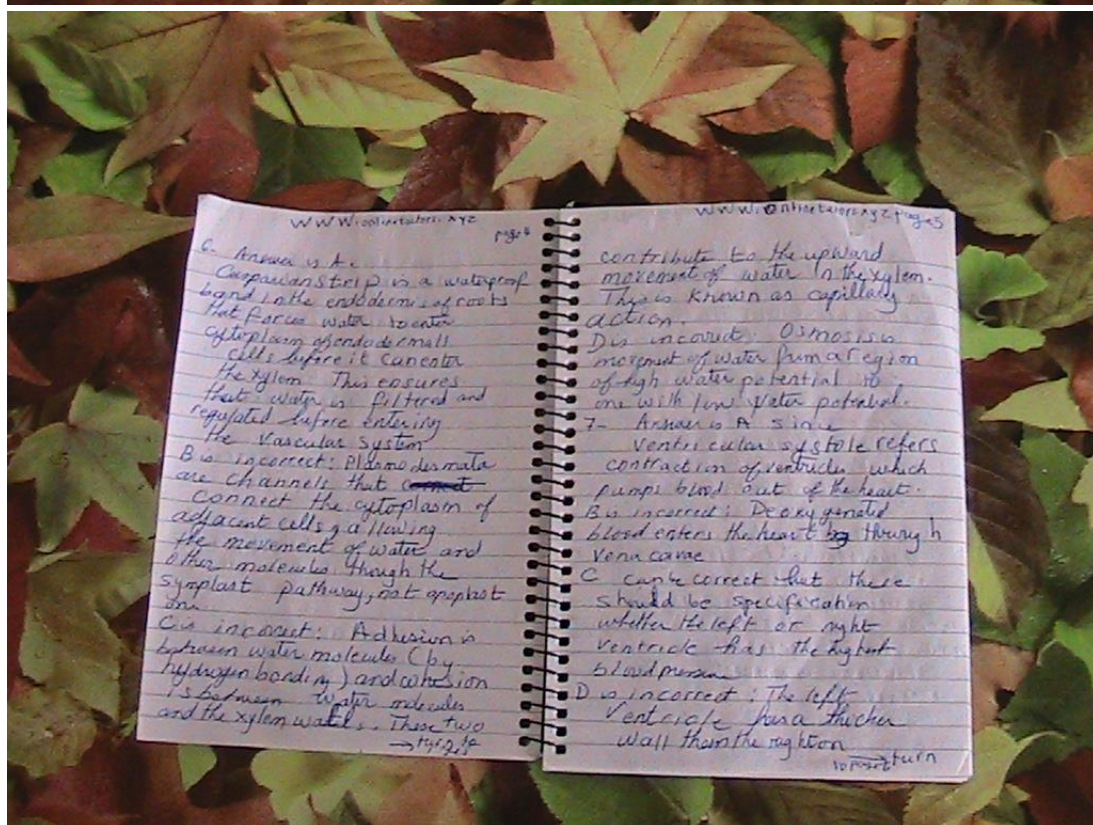 www.onlinetutors.xyz
page 4
6. Answer is A.
Casparian Strip is a waterproof
band in the endodermis of roots
that forces water to enter
cytoplasm of endodermall
cells before it can enter
the xylem. This ensures
that water is filtered and
regulated before entering
the vascular system
B is incorrect: Plasmodesmata
are channels that
connect the cytoplasm of
adjacent cells, allowing
the movement of water and
other molecules though the
symplast pathway, not apoplast
one.
C is incorrect: Adhesion is
between water molecules (by
hydrogen bonding) and cohesion
is between water molecules
and the xylem waters. These two
www.onlinetutors.xyz page 5
contribute to the upward
movement of water in the xylem.
This is known as capillary
action.
D is incorrect: Osmosis is
movement of water from a region
of high water potential to
one with low water potential.
7- Answer is A since
ventricular systole refers
contraction of ventricles which
pumps blood out of the heart.
B is incorrect: Deoxygenated
blood enters the heart through
vena cavae
C can be correct but there
should be specification
whether the left or right
ventricle has the highest
blood pressure
D is incorrect: The left
ventricle has a thicker
wall than the right on
turn